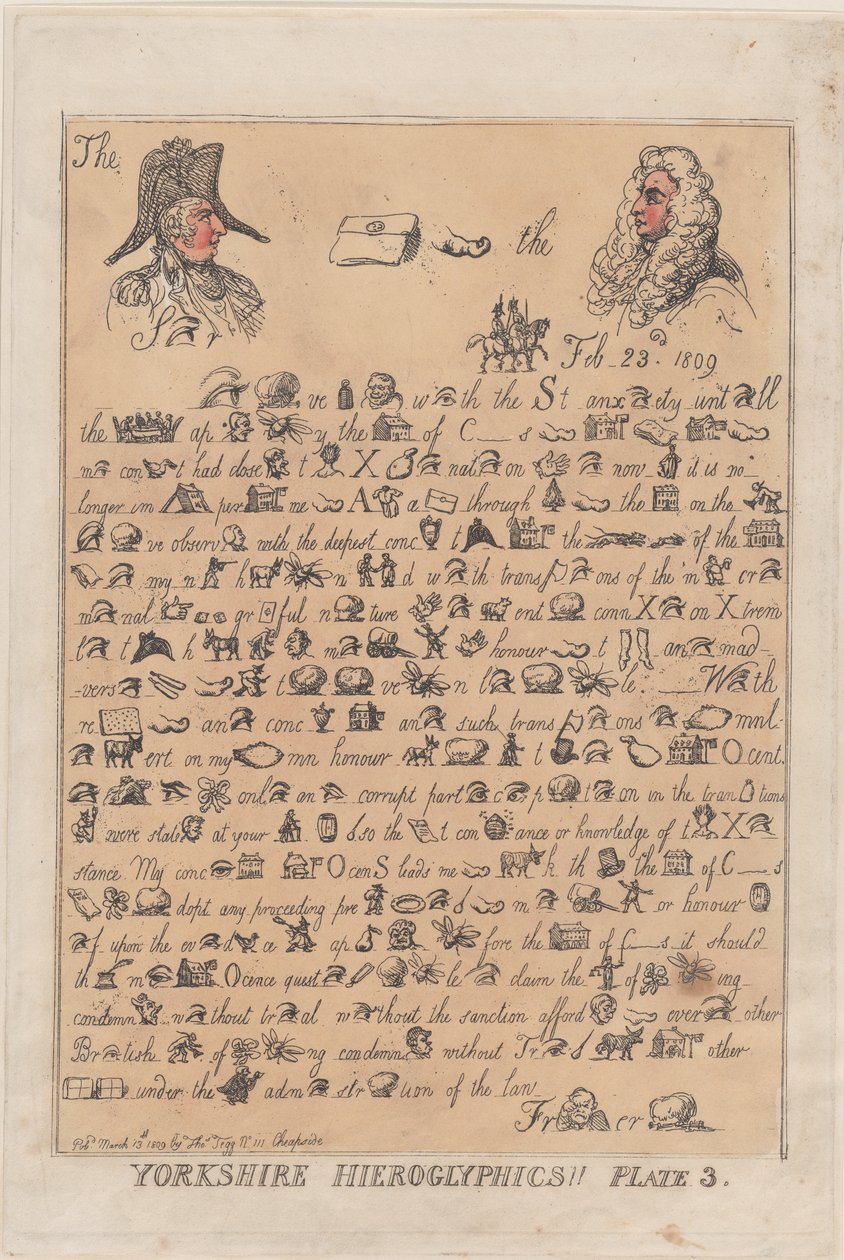 The
the
S r
Feb 23d 1809
ve w th the St anx ety unt ll
the ap y the of C___s
m con t had close t X nat on now it is no
longer im per me A a through the on the
ve observ with the deepest conc t the of the
my n h n d w th trans ons of the m cr
m nal gr ful n ture ent conn X on X trem
l t h m honour t an mad-
-vers t ve n l le. ___W th
re an conc an such trans ons mnl-
ert on my mn honour t O cent.
onl an corrupt part c p t on in the tran tions
were state at your so the t con ance or knowledge of t X
stance. My conc O cen S leads me k th the of C___s
dopt any proceeding pre m or honour
f upon the ev d ce ap fore the of C___s it should
th m O cence quest le claim the of ing
condemn w thout tr al w thout the sanction afford over other
Br tish of ng condemn without Tr other
under the adm str tion of the law
Fr er
Pubd March 13th 1809 by Thos Tegg No 111 Cheapside
YORKSHIRE HIEROGLYPHICS!! PLATE 3.